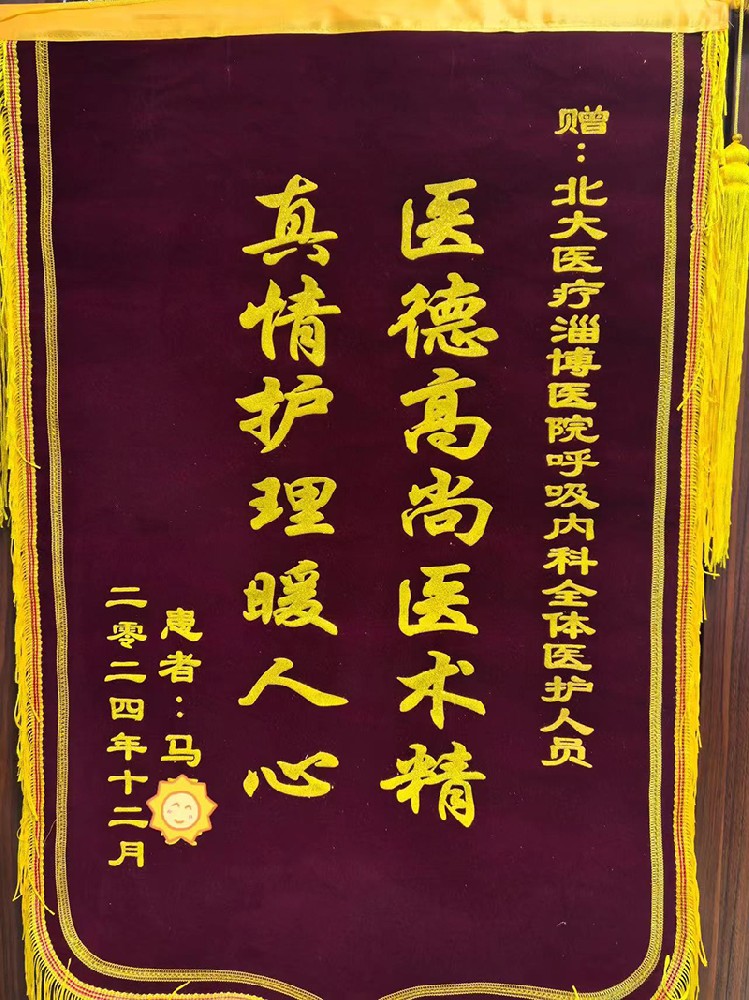 赠：北大医疗淄博医院呼吸内科全体医护人员
医德高尚医术精
真情护理暖人心
患者：马
二零二四年十二月